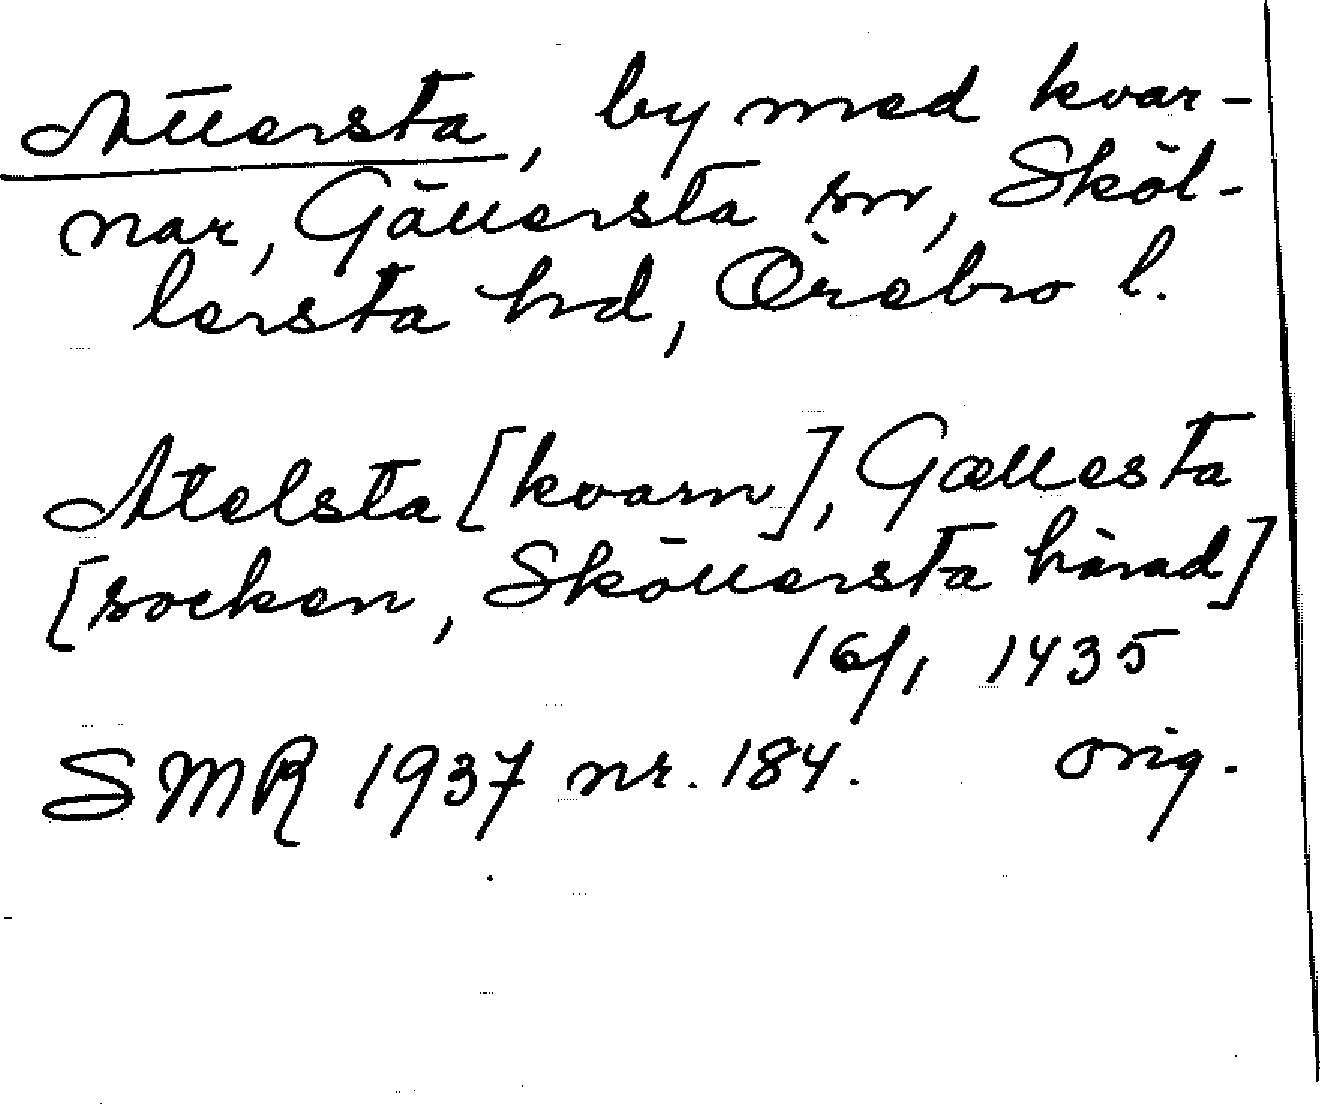 Attersta, by med kvar-
nar, Gällersta sn, Sköl-
lersta hd, Örebro l.
Atelsta [kvarn], Gællesta
[socken, Sköllersta härad]
16/1 1435
SMR 1937 nr. 184. orig.